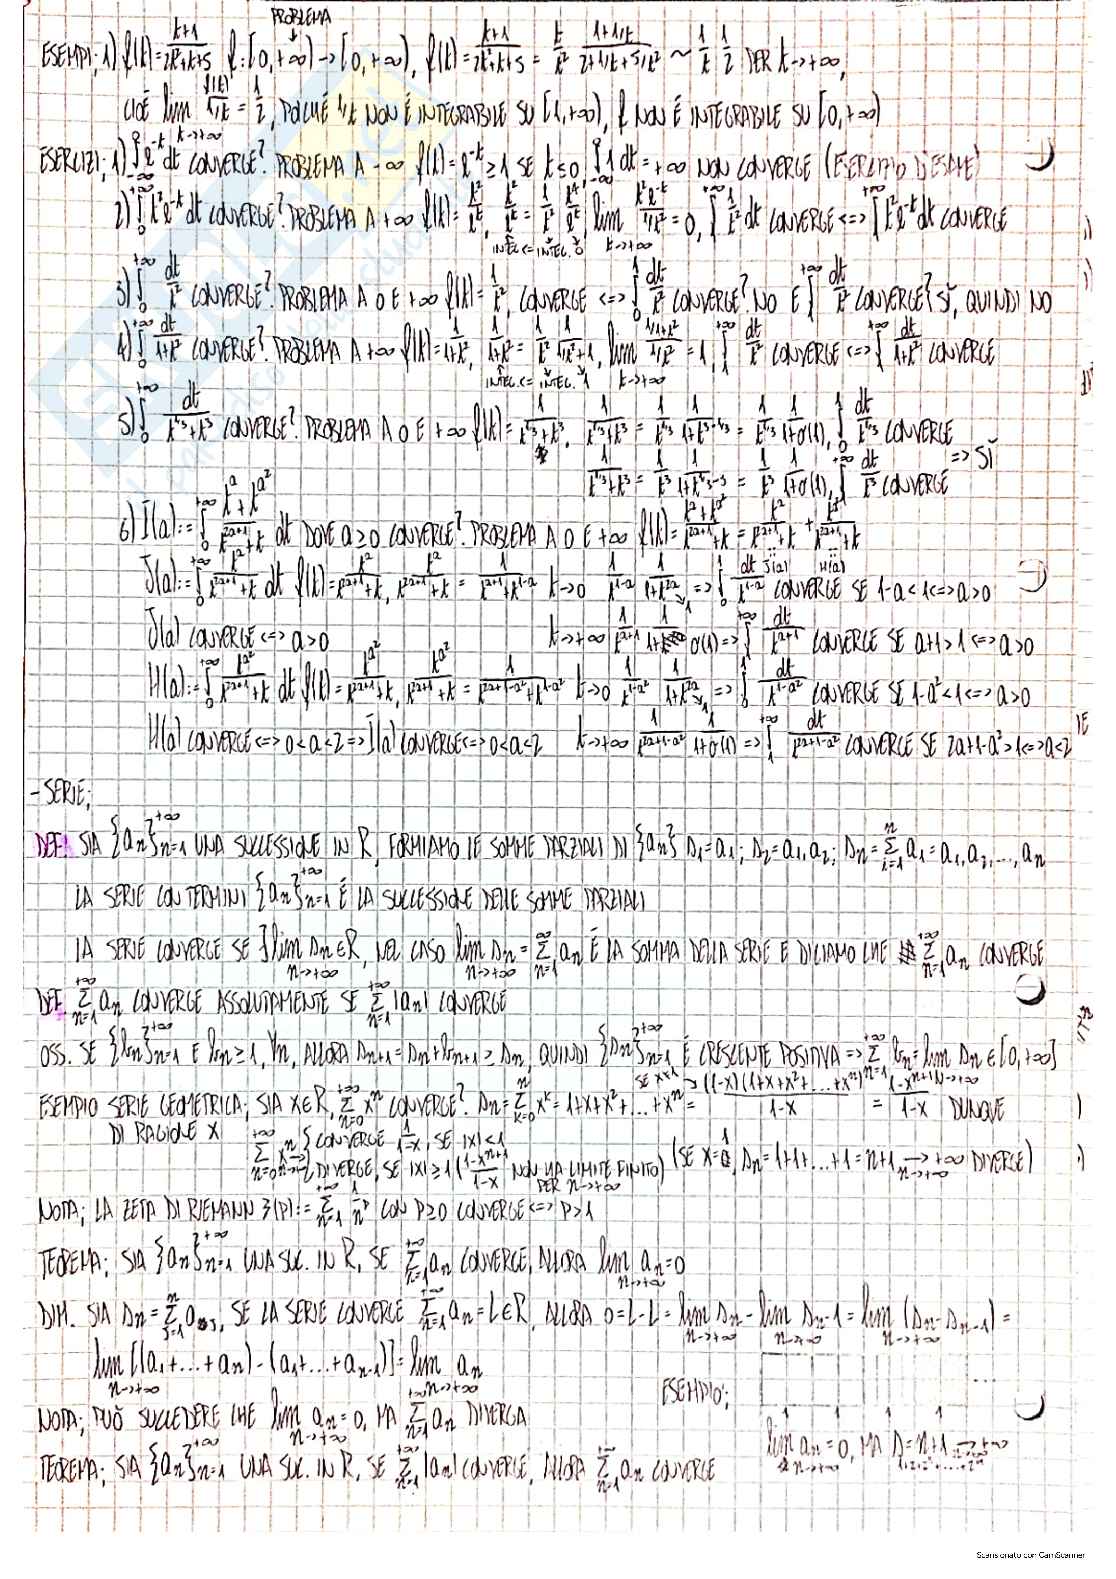 PROBLEMA
ESEMPI; 1) f(t)=t+1/2t²+t+5 f:[0,+∞)→[0,+∞), f(t)=t+1/2t²+t+5 = t/t² 1+1/t/2+1/t+5/t² ~ 1/t 1/2 PER t→+∞,
CIOÉ lim t→+∞ f(t)/1/t = 1/2, POICHÉ 1/t NON É INTEGRABILE SU [1,+∞), f NON É INTEGRABILE SU [0,+∞)
ESERCIZI; 1) ∫ e^-t dt CONVERGE? PROBLEMA A -∞ f(t)=e^-t ≥1 SE t≤0, ∫ 1 dt=+∞ NON CONVERGE (ESERCIZIO D'ESAME)
2) ∫ t²e^-t dt CONVERGE? PROBLEMA A +∞ f(t)=t²/e^t, t²/e^t = 1/t² t⁴/e^t, lim t→+∞ t²e^-t/1/t² = 0, ∫ 1/t² dt CONVERGE <=> ∫ t²e^-t dt CONVERGE
INTEG. <= INTEG. 0
3) ∫ dt/t² CONVERGE? PROBLEMA A 0 E +∞ f(t)=1/t², CONVERGE <=> ∫ dt/t² CONVERGE? NO E ∫ dt/t² CONVERGE? SÌ, QUINDI NO
4) ∫ dt/1+t² CONVERGE? PROBLEMA A +∞ f(t)=1/1+t², 1/1+t² = 1/t² 1/1/t²+1, lim t→+∞ 1/1+t²/1/t² = 1, ∫ dt/t² CONVERGE <=> ∫ dt/1+t² CONVERGE
INTEG. <= INTEG. 1
5) ∫ dt/t^1/3+t³ CONVERGE? PROBLEMA A 0 E +∞ f(t)=1/t^1/3+t³, 1/t^1/3+t³ = 1/t^1/3 1/1+t^3-1/3 = 1/t^1/3 1/1+o(1), ∫ dt/t^1/3 CONVERGE
=> SÌ
1/t^1/3+t³ = 1/t³ 1/1+t^1/3-3 = 1/t³ 1/1+o(1), ∫ dt/t³ CONVERGE
6) I(a):=∫ t^a+t^a²/t^2a+1+t dt DOVE a≥0 CONVERGE? PROBLEMA A 0 E +∞ f(t)=t^a+t^a²/t^2a+1+t = t^a/t^2a+1+t + t^a²/t^2a+1+t
J(a) H(a)
J(a):=∫ t^a/t^2a+1+t dt f(t)=t^a/t^2a+1+t, t^a/t^2a+1+t = 1/t^a+1+t^1-a t→0 1/t^1-a 1/1+t^2a => ∫ dt/t^1-a CONVERGE SE 1-a<1<=>a>0
J(a) CONVERGE <=> a>0 t→+∞ 1/t^a+1 1/1+o(1) => ∫ dt/t^a+1 CONVERGE SE a+1>1 <=> a>0
H(a):=∫ t^a²/t^2a+1+t dt f(t)=t^a²/t^2a+1+t, t^a²/t^2a+1+t = 1/t^2a+1-a²+t^1-a² t→0 1/t^1-a² 1/1+t^2a => ∫ dt/t^1-a² CONVERGE SE 1-a²<1<=>a>0
H(a) CONVERGE <=> 0<a<2 => I(a) CONVERGE <=> 0<a<2 t→+∞ 1/t^2a+1-a² 1/1+o(1) => ∫ dt/t^2a+1-a² CONVERGE SE 2a+1-a²>1<=>a<2
- SERIE;
DEF: SIA {an}n=1^+∞ UNA SUCCESSIONE IN R, FORMIAMO LE SOMME PARZIALI DI {an} s1=a1; s2=a1,a2; sn=Σ i=1^n ai=a1,a2,...,an
LA SERIE CON TERMINI {an}n=1^+∞ É LA SUCCESSIONE DELLE SOMME PARZIALI
LA SERIE CONVERGE SE ∃ lim n→+∞ sn∈R, NEL CASO lim n→+∞ sn=Σ n=1^∞ an É LA SOMMA DELLA SERIE E DICIAMO CHE Σ n=1^+∞ an CONVERGE
DEF. Σ n=1^+∞ an CONVERGE ASSOLUTAMENTE SE Σ n=1^+∞ |an| CONVERGE
OSS. SE {bn}n=1^+∞ E bn≥1, ∀n, ALLORA sn+1=sn+bn+1≥sn, QUINDI {sn}n=1^+∞ É CRESCENTE POSITIVA => Σ n=1^+∞ bn=lim n→+∞ sn∈[0,+∞]
ESEMPIO SERIE GEOMETRICA; SIA x∈R, Σ n=0^+∞ x^n CONVERGE? sn=Σ k=0^n x^k=1+x+x²+...+x^n = SE x≠1 (1-x)(1+x+x²+...+x^n)/1-x = 1-x^n+1/1-x DUNQUE
DI RAGIONE x
Σ n=0^+∞ x^n { CONVERGE 1/1-x, SE |x|<1
DIVERGE, SE |x|≥1 (1-x^n+1/1-x NON HA LIMITE FINITO PER n→+∞) (SE x=1, sn=1+1+...+1=n+1 n→+∞ → +∞ DIVERGE)
NOTA; LA ZETA DI RIEMANN ζ(p):=Σ n=1^+∞ 1/n^p CON p≥0 CONVERGE <=> p>1
TEOREMA; SIA {an}n=1^+∞ UNA SUC. IN R, SE Σ n=1^+∞ an CONVERGE, ALLORA lim n→+∞ an=0
DIM. SIA sn=Σ j=1^n aj, SE LA SERIE CONVERGE Σ n=1^+∞ an=L∈R, ALLORA 0=L-L=lim n→+∞ sn-lim n→+∞ sn-1=lim n→+∞ (sn-sn-1)=
lim n→+∞ [(a1+...+an)-(a1+...+an-1)]=lim n→+∞ an
ESEMPIO;
NOTA; PUÒ SUCCEDERE CHE lim n→+∞ an=0, MA Σ n=1^+∞ an DIVERGA
1 1 1 1 ...
lim n→+∞ an=0, MA s=n+1 → +∞
TEOREMA; SIA {an}n=1^+∞ UNA SUC. IN R, SE Σ n=1^+∞ |an| CONVERGE, ALLORA Σ n=1^+∞ an CONVERGE
Scansionato con CamScanner